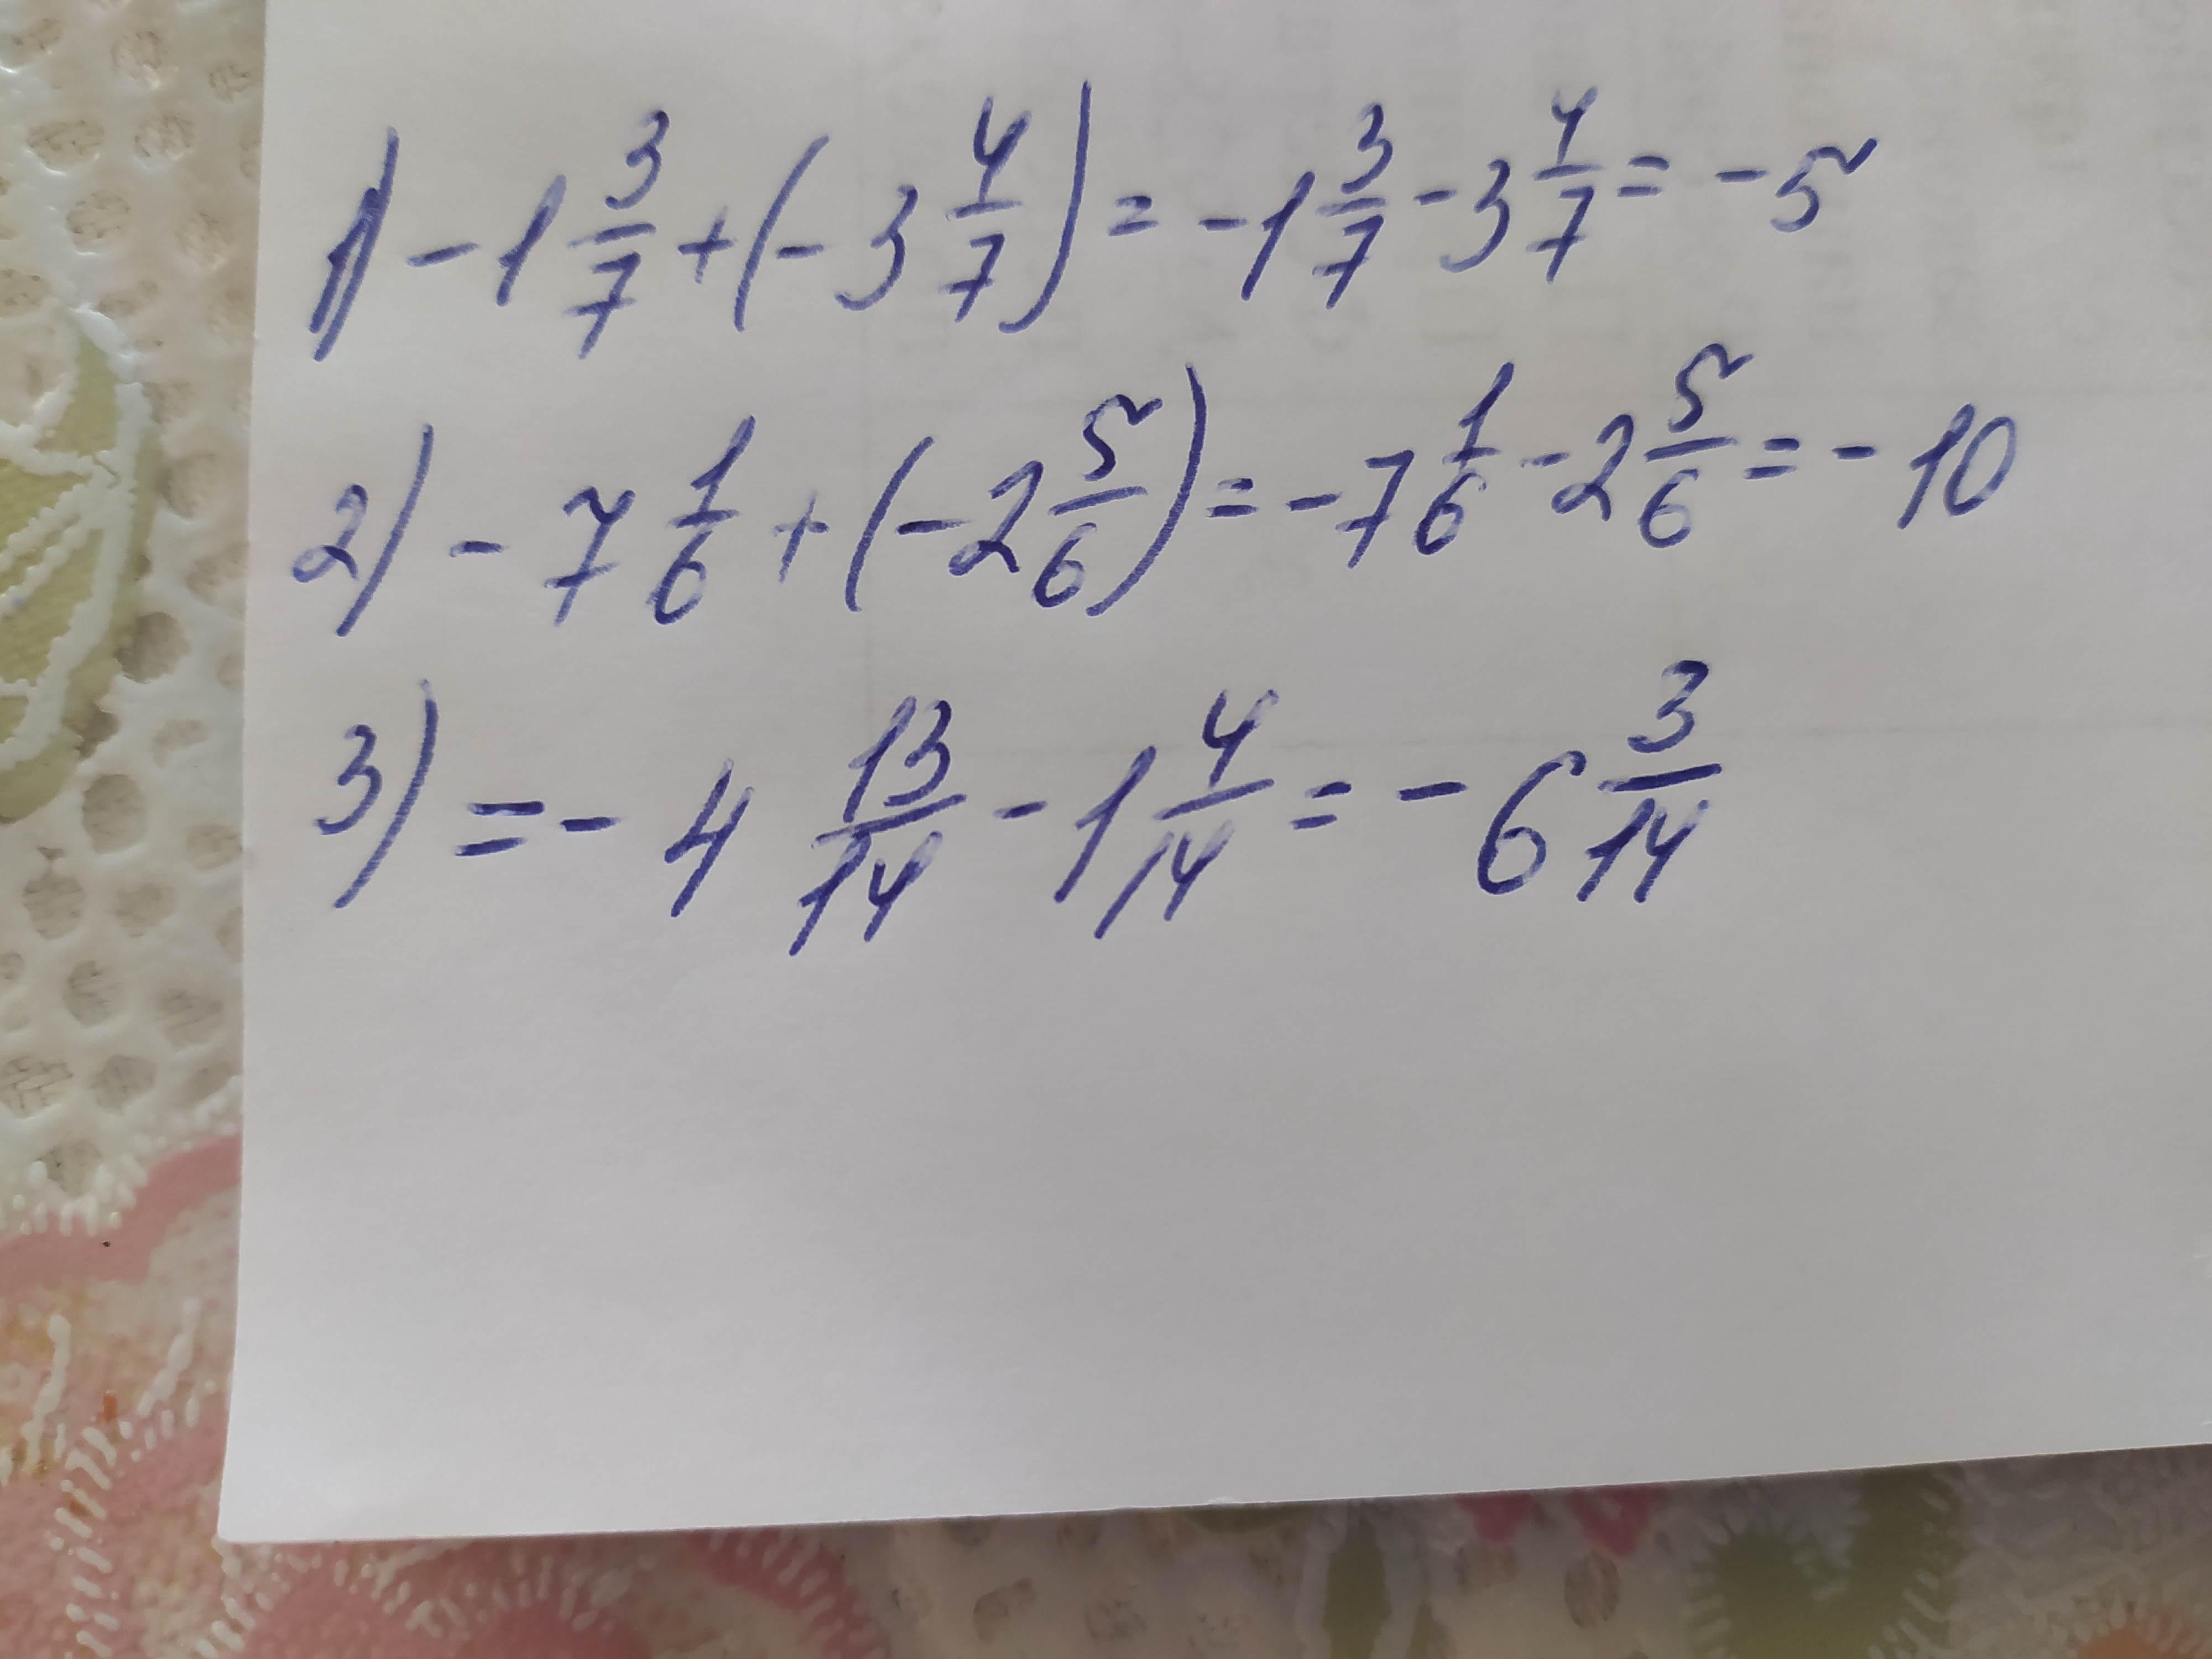 1) -1 3/7 + (-3 4/7) = -1 3/7 - 3 4/7 = -5
2) -7 1/6 + (-2 5/6) = -7 1/6 - 2 5/6 = -10
3) = -4 13/14 - 1 4/14 = -6 3/14